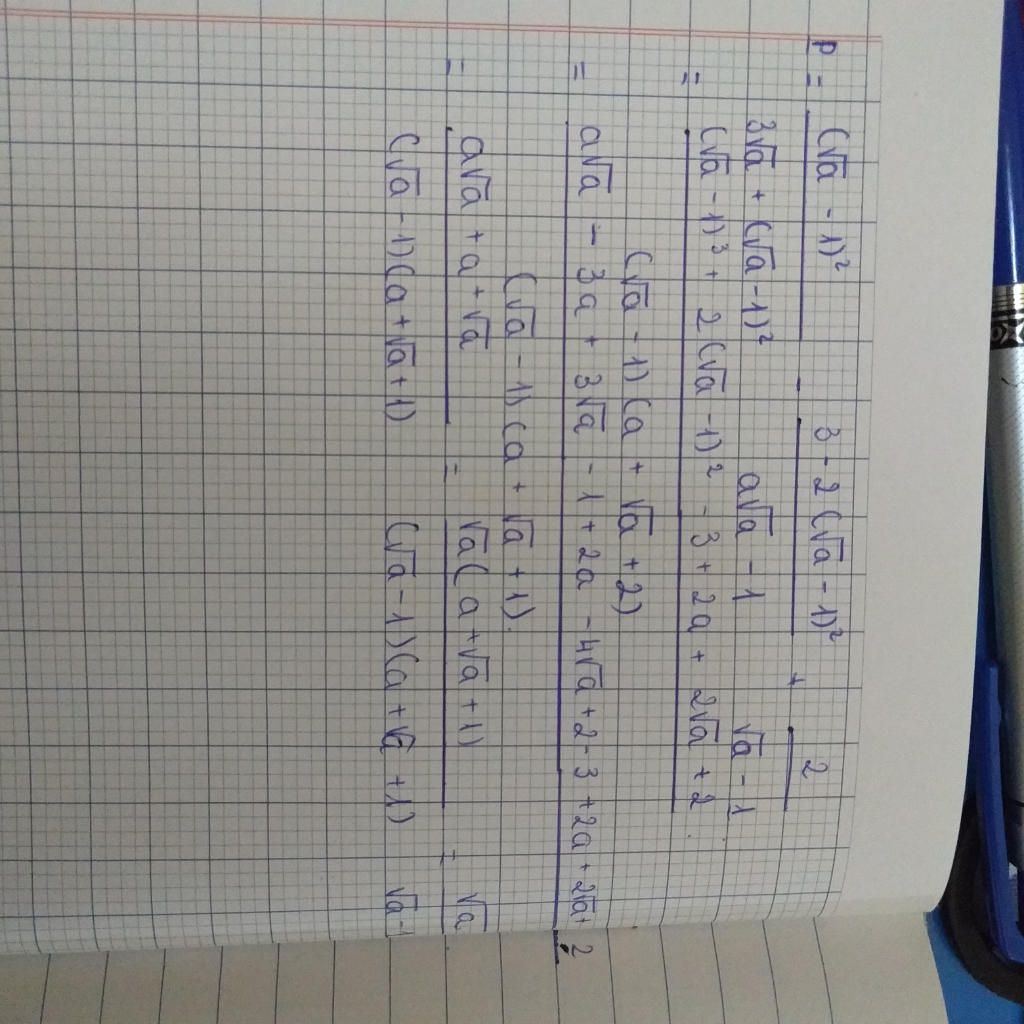 P = (√a - 1)² / 3√a + (√a - 1)² - 3 - 2(√a - 1)² / a√a - 1 + 2 / √a - 1
= (√a - 1)³ + 2(√a - 1)² - 3 + 2a + 2√a + 2 / (√a - 1)(a + √a + 2)
= a√a - 3a + 3√a - 1 + 2a - 4√a + 2 - 3 + 2a + 2√a + 2 / (√a - 1)(a + √a + 1).
= a√a + a + √a / (√a - 1)(a + √a + 1) = √a(a + √a + 1) / (√a - 1)(a + √a + 1) = √a / √a - 1